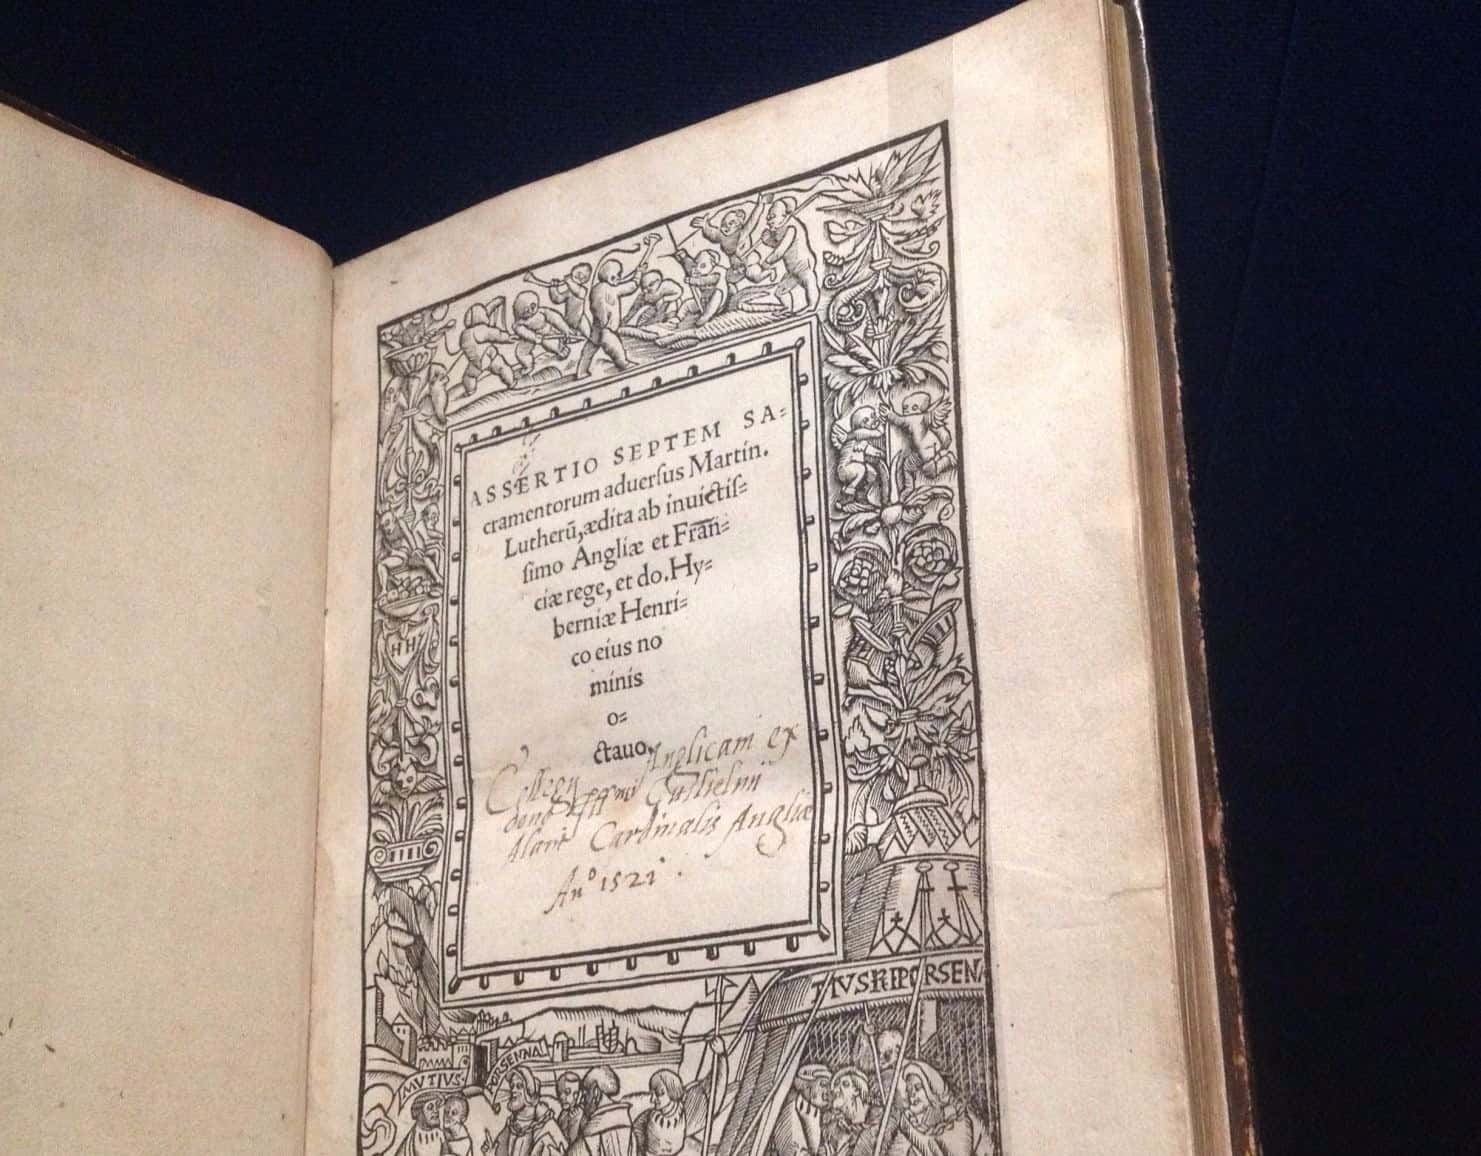 ASSERTIO SEPTEM SA=
cramentorum aduerſus Martin.
Lutherū, ædita ab inuictiſ=
ſimo Angliæ et Frān=
ciæ rege, et do. Hy=
berniæ Henri=
co eius no
minis
o=
ctauo.
Anglicani ex
dono Guilielmi
Alani Cardinalis Angliæ
Anº 1521.
HH
MVTIVS
PORSENNA
PORSENA